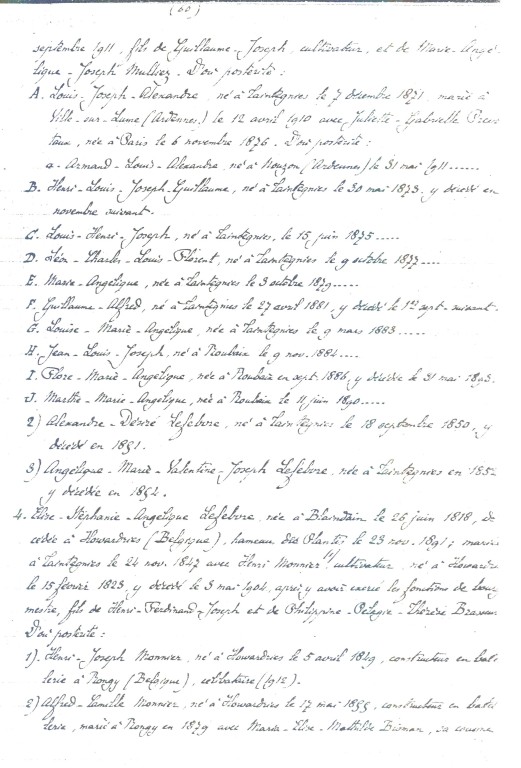 (60)
septembre 1911, fils de Guillaume-Joseph, cultivateur, et de Marie-Angé-
lique-Joseph Mullier. D'où postérité:
A. Louis-Joseph-Alexandre, né à Taintegnies le 7 décembre 1871, marié à
Ville-sur-Lume (Ardennes) le 12 avril 1910 avec Juliette-Gabrielle
née à Paris le 6 novembre 1876. D'où postérité:
a- Armand-Louis-Alexandre, né à Nouzon (Ardennes) le 31 mai 1911......
B. Henri-Louis-Joseph-Guillaume, né à Taintegnies le 30 mai 1873, y décédé en
novembre suivant.
C. Louis-Henri-Joseph, né à Taintegnies, le 15 juin 1875.....
D. Léon-Charles-Louis-Florent, né à Taintegnies le 9 octobre 1877....
E. Marie-Angélique, née à Taintegnies le 3 octobre 1879.....
F. Guillaume-Alfred, né à Taintegnies le 27 avril 1881, y décédé le 1er sept. suivant.
G. Louise-Marie-Angélique, née à Taintegnies le 9 mars 1883.....
H. Jean-Louis-Joseph, né à Roubaix le 9 nov. 1884....
I. Flore-Marie-Angélique, née à Roubaix en sept. 1886, y décédée le 31 mai 1893.
J. Marthe-Marie-Angélique, née à Roubaix le 11 juin 1890.....
2) Alexandre-Désiré Lefebvre, né à Taintegnies le 18 septembre 1850, y
décédé en 1851.
3) Angélique-Marie-Valentine-Joseph Lefebvre, née à Taintegnies en 1852
y décédée en 1852.
4. Elise-Stéphanie-Angélique Lefebvre, née à Blandain le 26 juin 1818, dé-
cédée à Howardries (Belgique), hameau des Plantis le 23 nov. 1891; mariée
à Taintegnies le 24 nov. 1847 avec Henri Monnier (1), cultivateur, né à Howardries
le 15 février 1823, y décédé le 3 mai 1904, après y avoir exercé les fonctions de bourg-
mestre, fils de Henri-Ferdinand-Joseph et de Philippine-Pélagie-Thérèse Brasseur.
D'où postérité:
1). Henri-Joseph Monnier, né à Howardries le 5 avril 1849, constructeur en batel-
lerie à Rongy (Belgique), célibataire (1912).
2) Alfred-Camille Monnier, né à Howardries le 17 mai 1855, constructeur en batel-
lerie, marié à Rongy en 1879 avec Marie-Elise-Mathilde Bisman, sa cousine